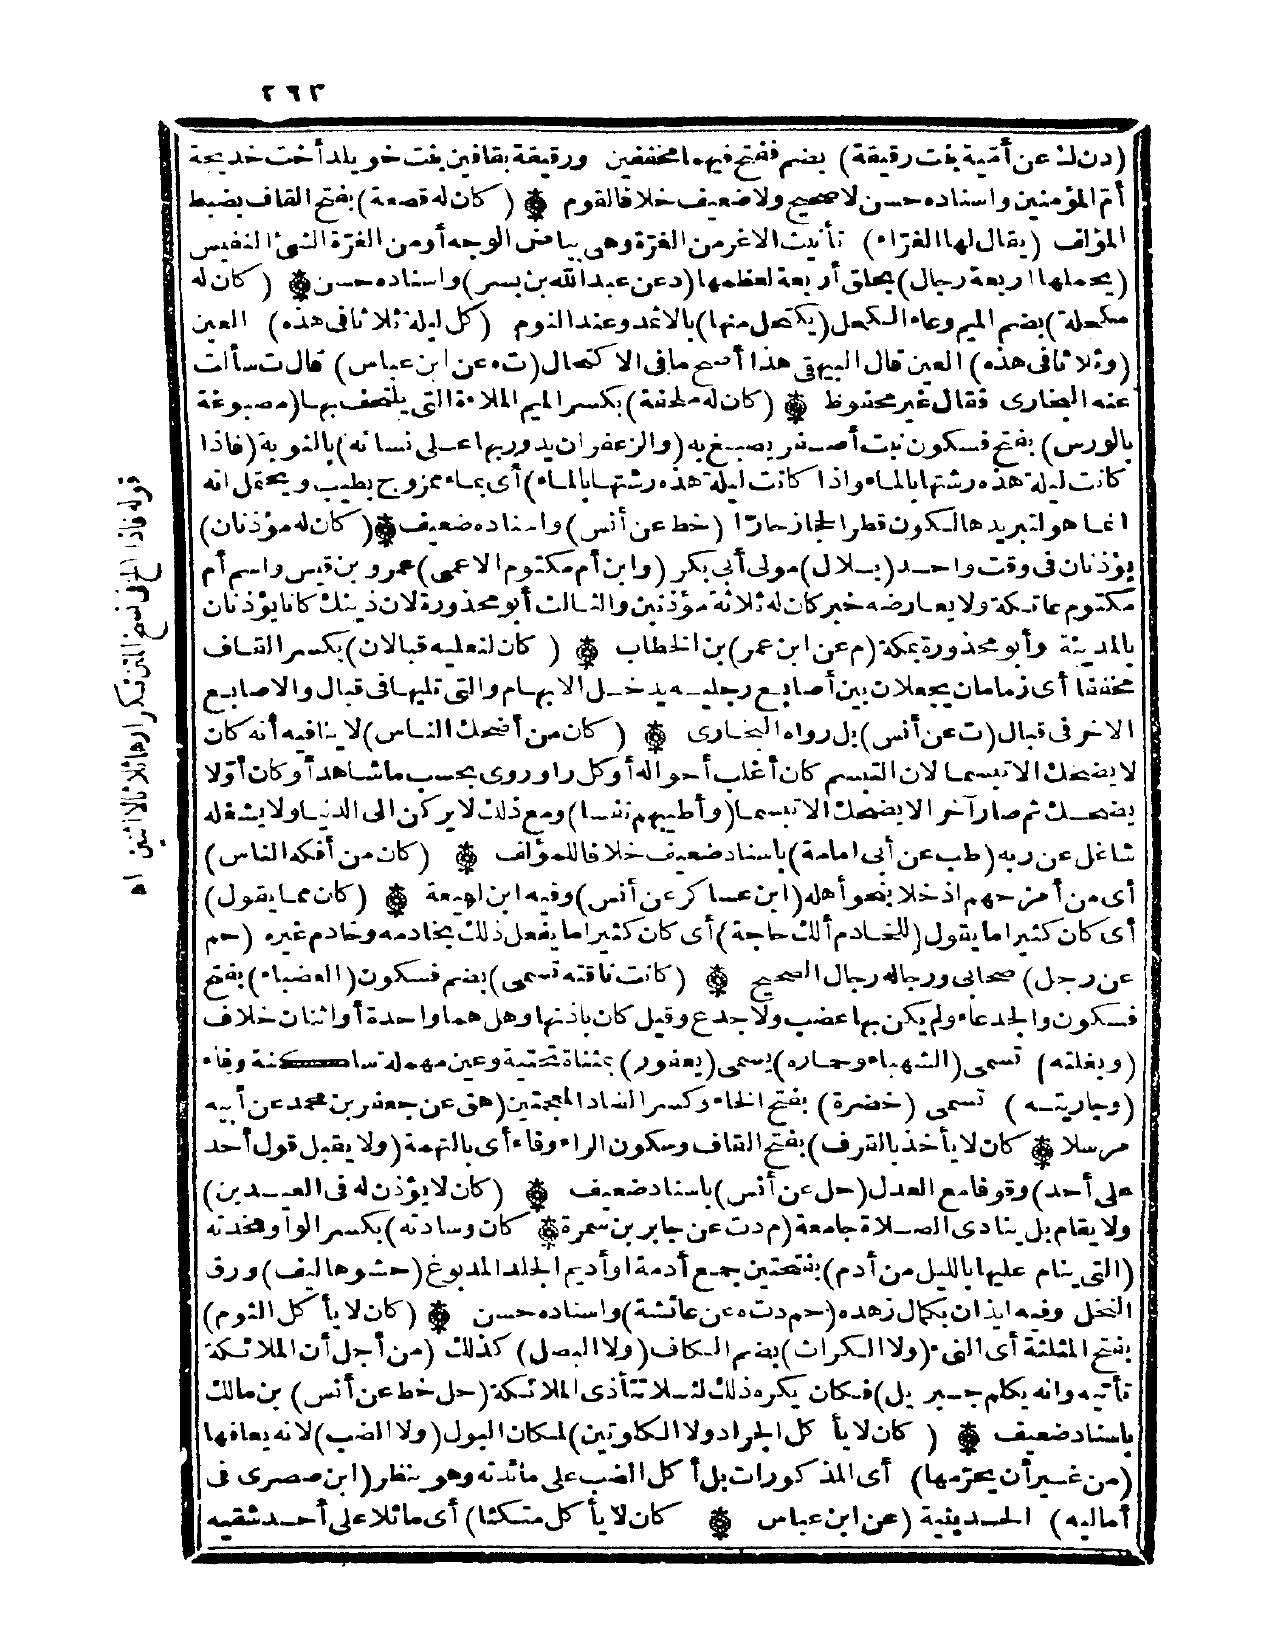 ٢٦٣
(دن ك عن أميمة بنت رقيقة) بضم ففتح فيهما مخففين ورقيقة بقافين بنت خويلد أخت خديجة
أم المؤمنين واسناده حسن لا صحيح ولا ضعيف خلافا لقوم ۞ (كان له قصعة) بفتح القاف بضبط
المؤلف (يقال لها الغراء) تأنيث الاغر من الغرة وهى بياض الوجه أو من الغرة الشئ النفيس
(يحملها اربعة رجال) بحلق أربعة لعظمها (د عن عبد الله بن بسر) واسناده حسن ۞ (كان له
مكحلة) بضم الميم وعاء الكحل (يكتحل منها) بالاثمد وعند النوم (كل ليلة ثلاثا فى هذه) العين
(وثلاثا فى هذه) العين قال البيهقى هذا أصح ما فى الاكتحال (ت ه عن ابن عباس) قال ت سألت
عنه البخارى فقال غير محفوظ ۞ (كان له ملحفة) بكسر الميم الملاءة التى يلتحف بها (مصبوغة
بالورس) بفتح فسكون نبت أصفر يصبغ به (والزعفران يدور بها على نسائه) بالنوبة (فاذا
كانت ليلة هذه رشتها بالماء واذا كانت ليلة هذه رشتها بالماء) أى بماء ممزوج بطيب ويحتمل انه
انما هو لتبريدها لكون قطر الحجاز حارّا (خط عن أنس) واسناده ضعيف ۞ (كان له مؤذنان)
يؤذنان فى وقت واحد (بلال) مولى أبى بكر (وابن أم مكتوم الاعمى) عمرو بن قيس واسم أم
مكتوم عاتكة ولا يعارضه خبر كان له ثلاثة مؤذنين والثالث أبو محذورة لان ذينك كانا يؤذنان
بالمدينة وأبو محذورة بمكة (م عن ابن عمر) بن الخطاب ۞ (كان لنعليه قبالان) بكسر القاف
مخففا أى زمامان يجعلان بين أصابع رجليه يدخل الابهام والتى تليها فى قبال والاصابع
الاخر فى قبال (ت عن أنس) بل رواه البخارى ۞ (كان من أضحك الناس) لا ينافيه أنه كان
لا يضحك الا تبسما لان التبسم كان أغلب أحواله أو كل راو روى بحسب ما شاهد أو كان أوّلا
يضحك ثم صار آخر الا يضحك الا تبسما (وأطيبهم نفسا) ومع ذلك لا يركن الى الدنيا ولا يشغله
شاغل عن ربه (طب عن أبى امامة) باسناد ضعيف خلافا للمؤلف ۞ (كان من أفكه الناس)
أى من أمزحهم اذ خلا بنحو أهله (ابن عساكر عن أنس) وفيه ابن لهيعة ۞ (كان مما يقول)
أى كان كثيرا ما يقول (للخادم ألك حاجة) أى كان كثيرا ما يفعل ذلك بخادمه وخادم غيره (حم
عن رجل) صحابى ورجاله رجال الصحيح ۞ (كانت ناقته تسمى) بضم فسكون (العضباء) بفتح
فسكون والجدعاء ولم يكن بها عضب ولا جدع وقيل كان باذنها وهل هما واحدة أو اثنان خلاف
(وبغلته) تسمى (الشهباء وحماره) يسمى (يعفور) بمثناة تحتية وعين مهملة ساكنة وفاء
(وجاريته) تسمى (خضرة) بفتح الخاء وكسر الضاد المعجمتين (هق عن جعفر بن محمد عن أبيه
مرسلا ۞ كان لا يأخذ بالقرف) بفتح القاف وسكون الراء وفاء أى بالتهمة (ولا يقبل قول أحد
على أحد) وقوفا مع العدل (حل عن أنس) باسناد ضعيف ۞ (كان لا يؤذن له فى العيدين)
ولا يقام بل ينادى الصلاة جامعة (م د ت عن جابر بن سمرة ۞ كان وسادته) بكسر الواو مخدته
(التى ينام عليها بالليل من أدم) بفتحتين جمع أدمة او أديم الجلد المدبوغ (حشوها ليف) ورق
النخل وفيه ايذان بكمال زهده (حم د ت ه عن عائشة) واسناده حسن ۞ (كان لا يأكل الثوم)
بفتح المثلثة أى النىء (ولا الكراث) بضم الكاف (ولا البصل) كذلك (من أجل أن الملائكة
تأتيه وانه يكلم جبريل) فكان يكره ذلك لئلا تتأذى الملائكة (حل خط عن أنس) بن مالك
باسناد ضعيف ۞ (كان لا يأكل الجراد ولا الكلوتين) لمكان البول (ولا الضب) لانه يعافها
(من غير أن يحرّمها) أى المذكورات بل أكل الضب على مائدته وهو ينظر (ابن صصرى فى
أماليه) الحديثية (عن ابن عباس ۞ كان لا يأكل متكئا) أى مائلا على أحد شقيه
قوله فاذا الخ فى نسخ المتن تكرارها ثلاثا لا اثنين اه